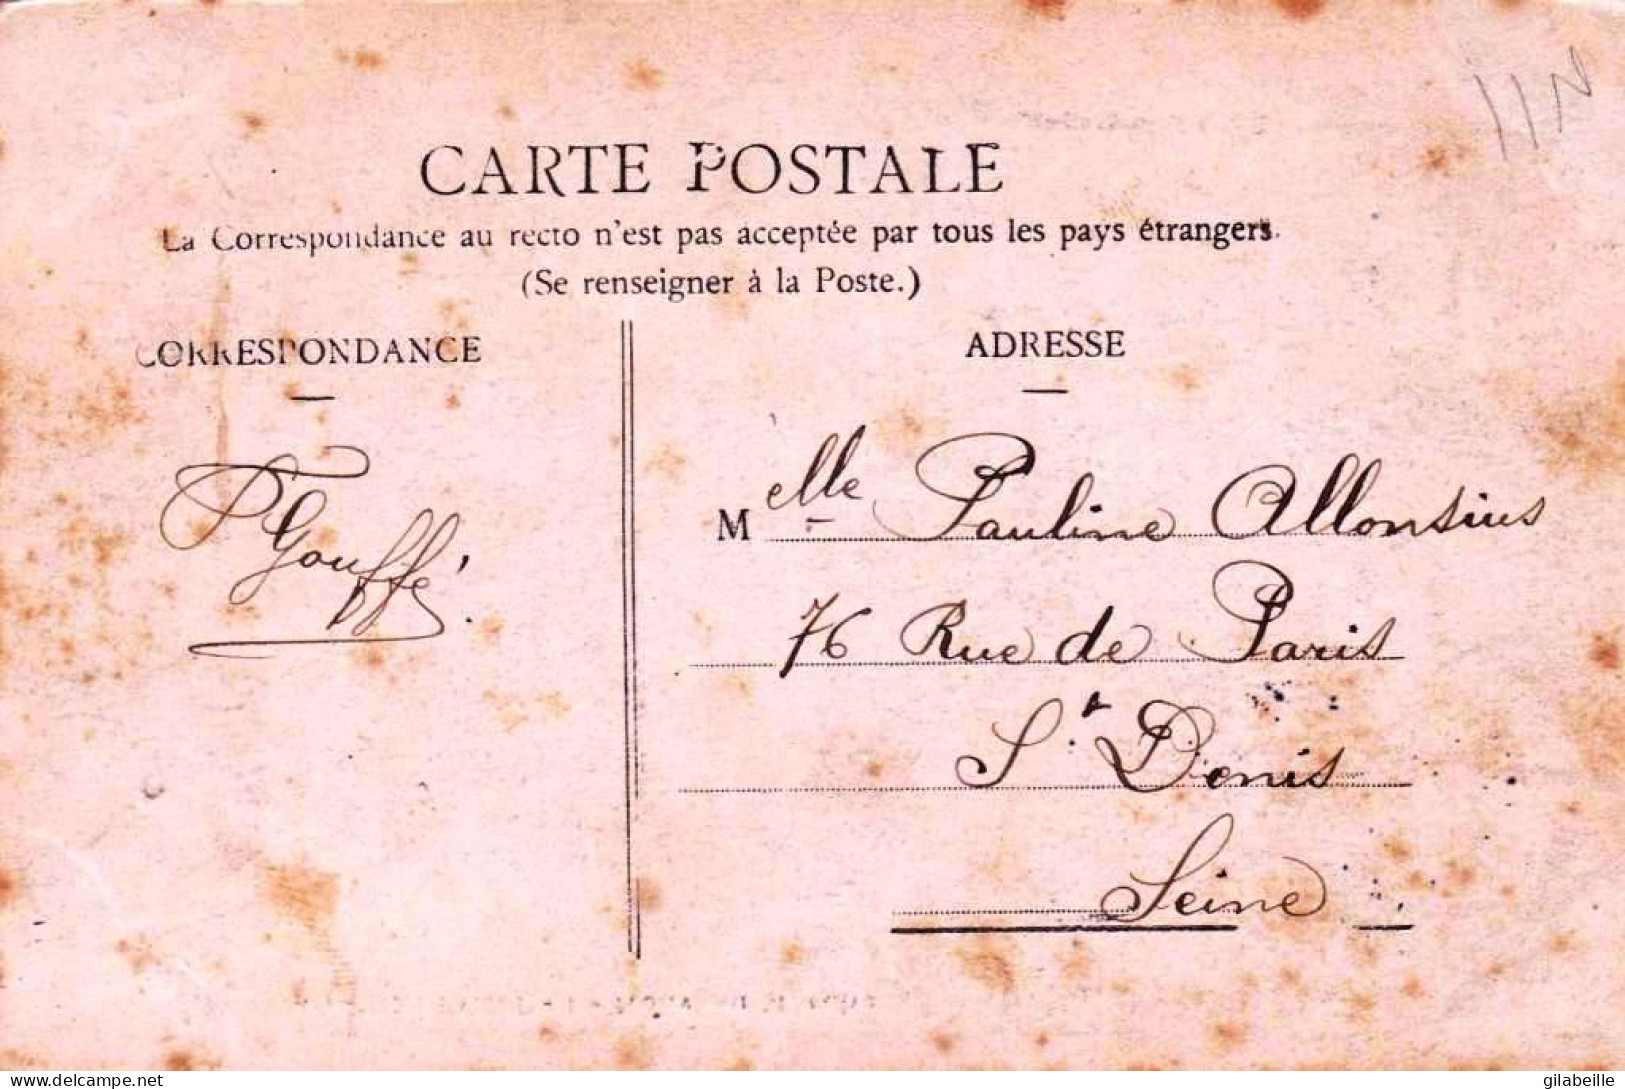 11N
CARTE POSTALE
La Correspondance au recto n'est pas acceptée par tous les pays étrangers.
(Se renseigner à la Poste.)
CORRESPONDANCE
P Gouffé.
ADRESSE
Melle Pauline Allonsius
76 Rue de Paris
St Denis
Seine
www.delcampe.net
gilabeille